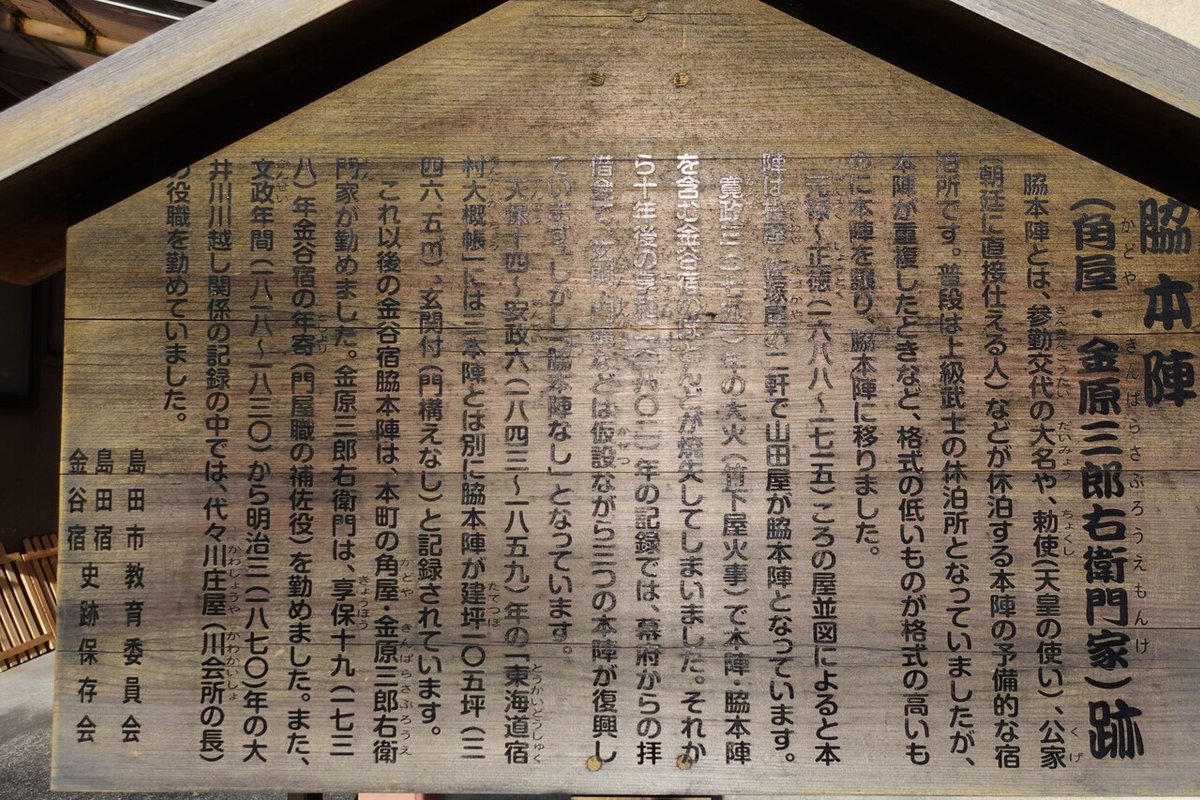 脇本陣
(角屋・金原三郎右衛門家)跡
かどや きんぱらさぶろうえもんけ
脇本陣とは、参勤交代の大名や、勅使(天皇の使い)、公家
さんきんこうたい だいみょう ちょくし くげ
(朝廷に直接仕える人)などが休泊する本陣の予備的な宿
泊所です。普段は上級武士の休泊所となっていましたが、
本陣が重複したときなど、格式の低いものが格式の高いも
のに本陣を譲り、脇本陣に移りました。
元禄〜正徳(一六八八〜一七一五)ころの屋並図によると本
陣は 佐塚屋の二軒で山田屋が脇本陣となっています。
寛政三(一七九一)年の大火(竹下屋火事)で本陣・脇本陣
を含む金谷宿のほとんどが焼失してしまいました。それか
ら十年後の享和二(一八〇二)年の記録では、幕府からの拝
借金で、玄関・門構などは仮設ながら三つの本陣が復興し
かせつ
ています。しかし「脇本陣なし」となっています。
天保十四〜安政六(一八四三〜一八五九)年の「東海道宿
とうかいどうしゅく
村大概帳」には三本陣とは別に脇本陣が建坪一〇五坪(三
たてつぼ
四六・五㎡)、玄関付(門構えなし)と記録されています。
これ以後の金谷宿脇本陣は、本町の角屋・金原三郎右衛
かどや きんぱらさぶろうえ
門家が勤めました。金原三郎右衛門は、享保十九(一七三
もん きょうほう
八)年金谷宿の年寄(門屋職の補佐役)を勤めました。また、
としより
文政年間(一八一八〜一八三〇)から明治三(一八七〇)年の大
ぶんせい
井川川越し関係の記録の中では、代々川庄屋(川会所の長)
かわしょうや かわかいしょ
の役職を勤めていました。
島田市教育委員会
島田宿
金谷宿 史跡保存会